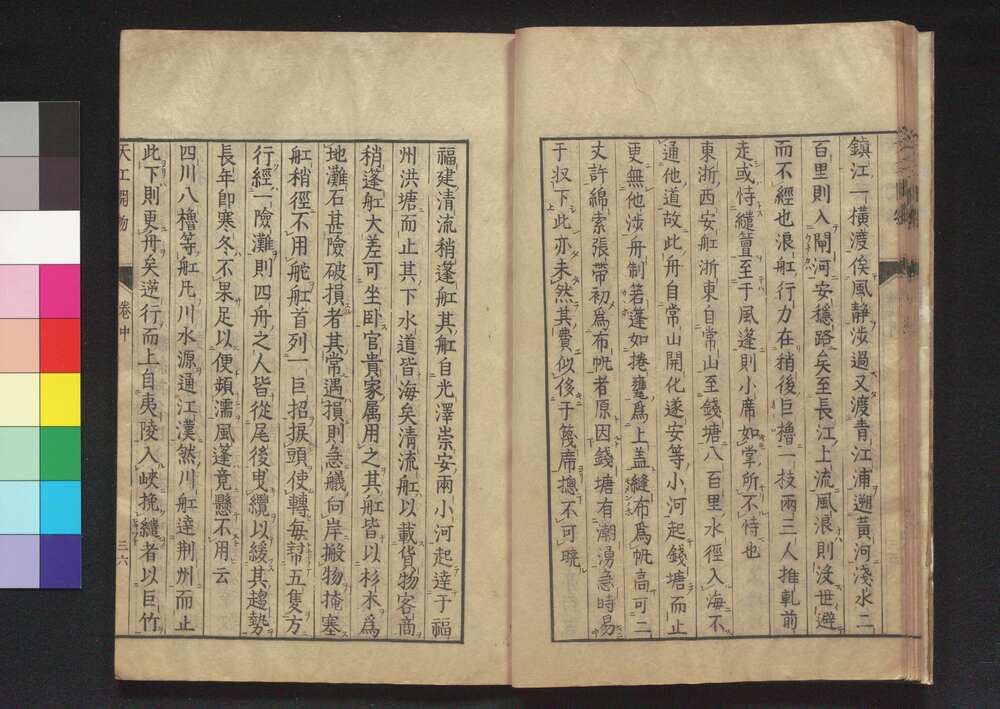 鎮江一橫渡俟風静渉過又渡青江浦遡黃河淺水二
百里則入閘河安穩路矣至長江上流風浪則沒世避
而不經也浪舡行力在稍後巨櫓一枝兩三人推軋前
走或恃纜簟至于風篷則小席如掌所不恃也
東浙西安舡浙東自常山至錢塘八百里水徑入海不
通他道故此舟自常山開化遂安等小河起錢塘而止
更無他渉舟制若蓬如捲甕爲上盖縫布爲帆高可二
丈許綿索張帶初爲布帆者原因錢塘有潮湧急時易
于収下此亦未然其費似侈于篾席摠不可曉
福建清流稍蓬舡其舡自光澤崇安兩小河起達于福
州洪塘而止其下水道皆海矣清流舡以載貨物客商
稍蓬舡大差可坐卧官貴家属用之其舡皆以杉木爲
地灘石甚險破損者其常遇損則急艤向岸搬物掩塞
舡稍徑不用舵舡首列一巨招捩頭使轉每幇五隻方
行經一險灘則四舟之人皆從尾後曳纜以緩其趨勢
長年卽寒冬不果足以便頻濡風蓬竟懸不用云
四川八櫓等舡凡川水源通江漢然川舡達荆州而止
此下則更舟矣逆行而上自夷陵入峽挽纜者以巨竹
天工開物
卷中
三六